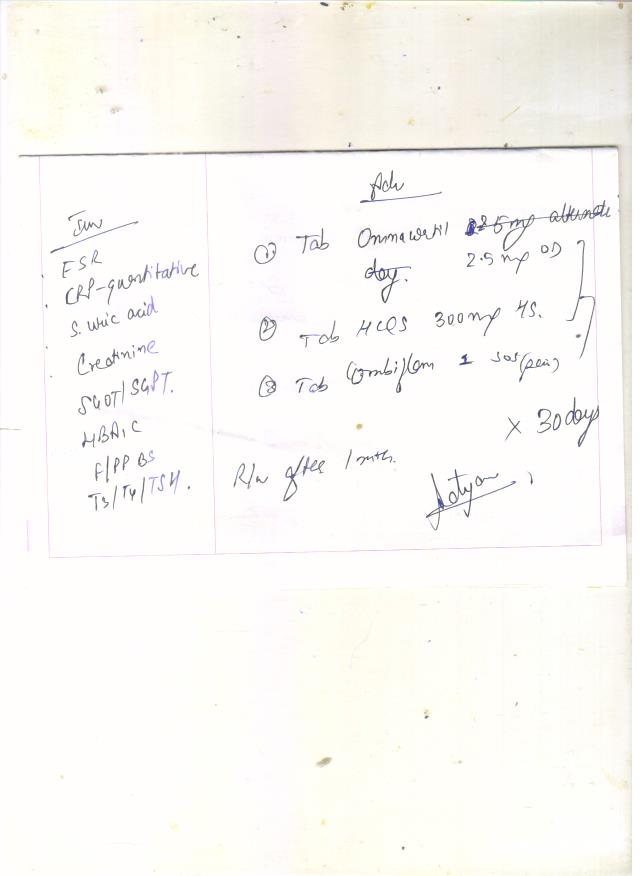 Inv
ESR
CRP-quantitative
S. uric acid
Creatinine
SGOT/SGPT.
HBA1C
F/PP BS
T3/T4/TSH.
Adv
① Tab Omnacortil 5mg alternate
day. 2.5 mg OD
② Tab HCQS 300mg HS.
③ Tab Combiflam 1 SOS (pain)
x 30 days
R/w after 1 mth.